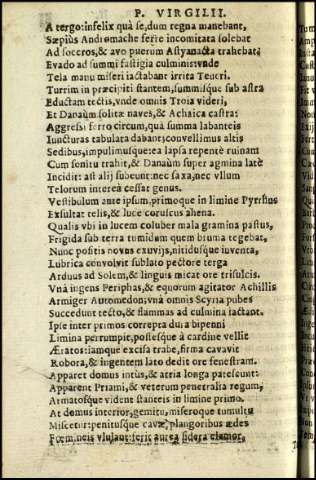 P. VIRGILII.
A tergo: infelix quà se, dum regna manebant,
Sæpius Andromache ferre incomitata solebat
Ad soceros, & avo puerum Astyanacta trahebat.
Evado ad summi fastigia culminis: vnde
Tela manu miseri iactabant irrita Teucri.
Turrim in præcipiti stantem, summisque sub astra
Eductam tectis, vnde omnis Troia videri,
Et Danaûm solitæ naves, & Achaica castra:
Aggressi ferro circum, quà summa labanteis
Iuncturas tabulata dabant; convellimus altis
Sedibus, impulimusque: ea lapsa repentè ruinam
Cum sonitu trahit, & Danaûm super agmina latè
Incidit: ast alij subeunt: nec saxa, nec vllum
Telorum intereà cessat genus.
Vestibulum ante ipsum, primoque in limine Pyrrhus
Exsultat telis, & luce coruscus ahena.
Qualis vbi in lucem coluber mala gramina pastus,
Frigida sub terra tumidum quem bruma tegebat,
Nunc positis novus exuvijs, nitidusque iuventa,
Lubrica convolvit sublato pectore terga
Arduus ad Solem, & linguis micat ore trisulcis.
Vnà ingens Periphas, & equorum agitator Achillis
Armiger Automedon; vnà omnis Scyria pubes
Succedunt tecto, & flammas ad culmina iactant.
Ipse inter primos correpta dura bipenni
Limina perrumpit, postesque à cardine vellit
Æratos: iamque excisa trabe, firma cavavit
Robora, & ingentem lato dedit ore fenestram.
Apparet domus intus, & atria longa patescunt:
Apparent Priami, & veterum penetralia regum,
Armatosque vident stanteis in limine primo.
At domus interior, gemitu, miseroque tumultu
Miscetur: penitusque cavæ, plangoribus ædes
Fœmineis vlulant: ferit aurea sidera clamor,